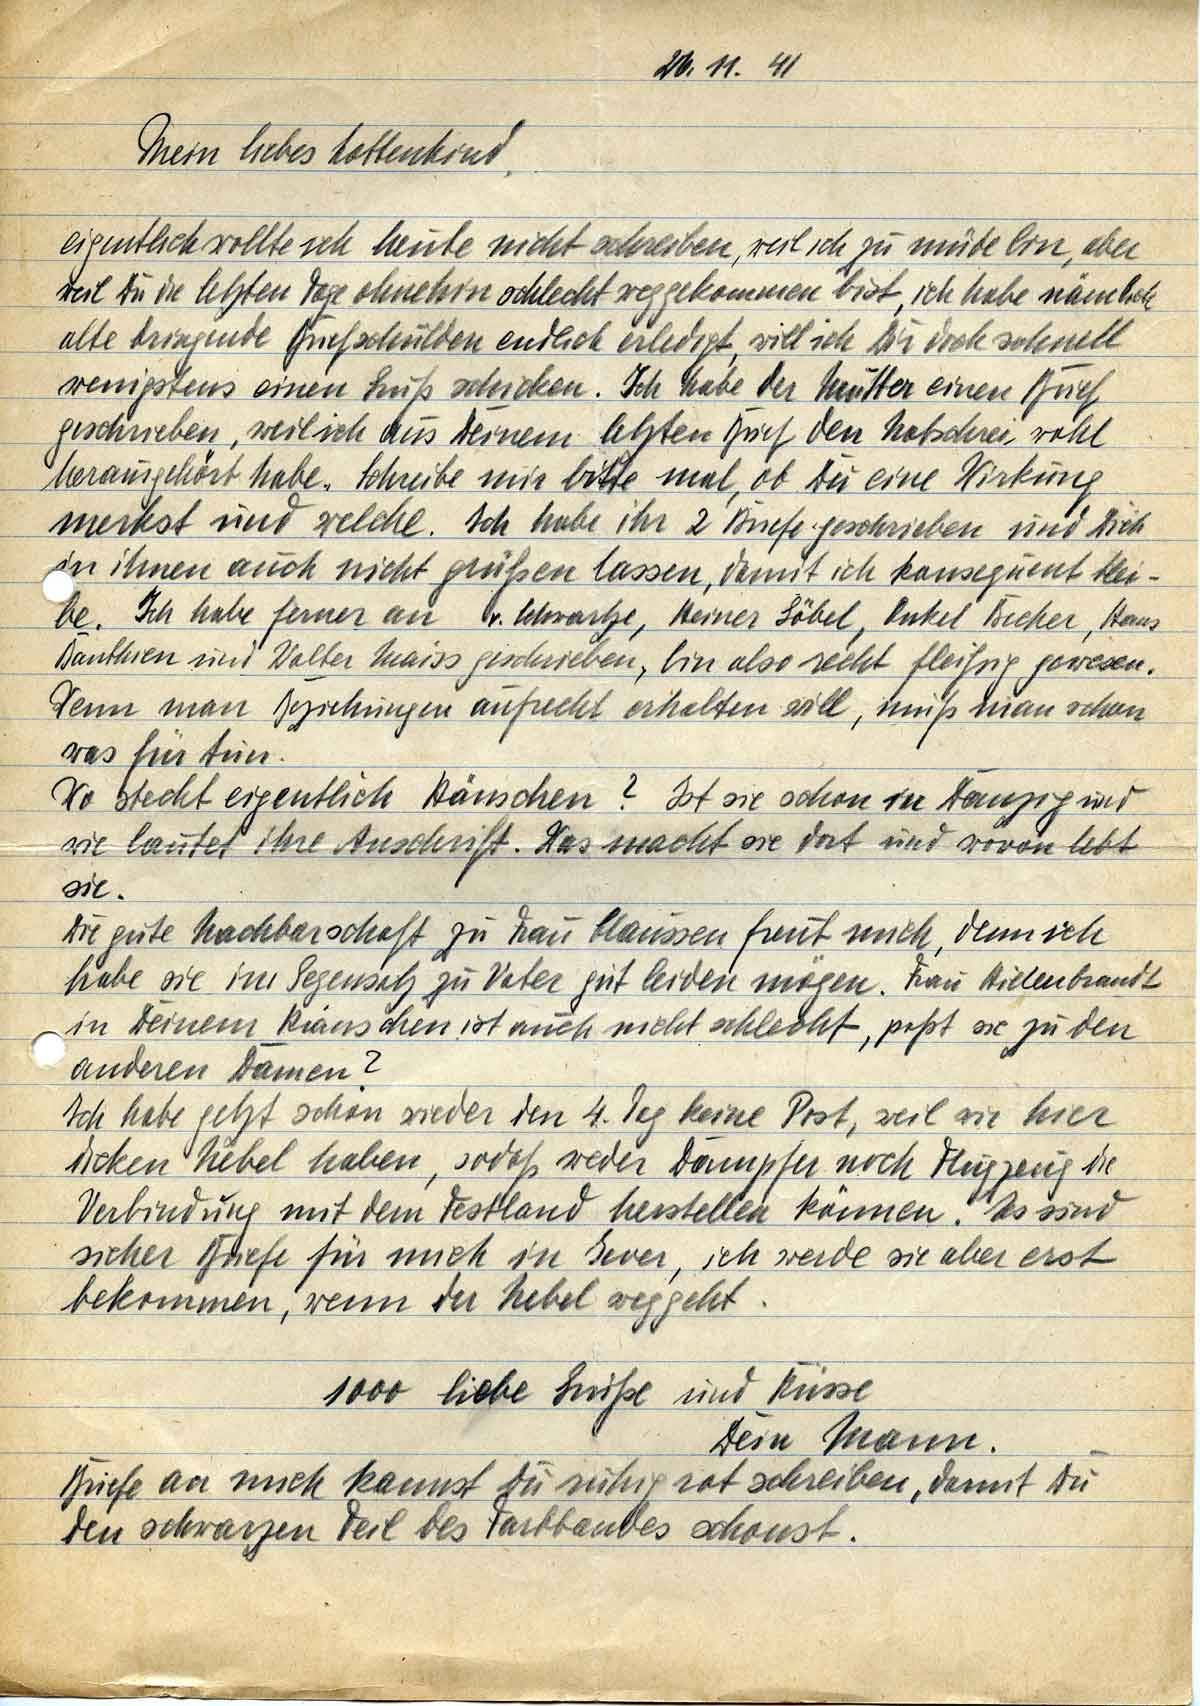 26. 11. 41
Mein liebes Lottenkind,
eigentlich wollte ich heute nicht schreiben, weil ich zu müde bin, aber
weil Du die letzten Tage ohnehin schlecht weggekommen bist, ich habe nämlich
alte dringende Briefschulden endlich erledigt, will ich Dir doch schnell
wenigstens einen Gruß schicken. Ich habe der Mutter einen Brief
geschrieben, weil ich aus Deinem letzten Brief den Notschrei wohl
herausgehört habe. Schreibe mir bitte mal, ob Du eine Wirkung
merkst und welche. Ich habe ihr 2 Briefe geschrieben und Dich
in ihnen auch nicht grüßen lassen, damit ich konsequent blei-
be. Ich habe ferner an v. Schwartze, Heiner Göbel, Onkel Bucher, Hans
Banthien und Walter Maiss geschrieben, bin also recht fleißig gewesen.
Wenn man Beziehungen aufrecht erhalten will, muß man schon
was für tun.
Wo steckt eigentlich Hänschen? Ist sie schon in Danzig und
wie lautet ihre Anschrift. Was macht sie dort und wovon lebt
sie.
Die gute Nachbarschaft zu Frau Claussen freut mich, denn ich
habe sie im Gegensatz zu Vater gut leiden mögen. Frau Hillenbrandt
in Deinem Kränzchen ist auch nicht schlecht, paßt sie zu den
anderen Damen?
Ich habe jetzt schon wieder den 4. Tag keine Post, weil wir hier
dicken Nebel haben, sodaß weder Dampfer noch Flugzeug die
Verbindung mit dem Festland herstellen können. Es sind
sicher Briefe für mich in Jever, ich werde sie aber erst
bekommen, wenn der Nebel weggeht.
1000 liebe Grüße und Küsse
Dein Mann.
Briefe an mich kannst Du ruhig rot schreiben, damit Du
den schwarzen Teil des Farbbandes schonst.